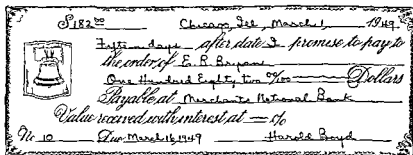 $182 00/100 Chicago, Ill, March 1 1949
Fifteen days after date I promise to pay to
the order of E. R. Bryan
One Hundred Eighty two 00/100 Dollars
Payable at Merchants National Bank
Value received with interest at — %
No 10 Due March 16, 1949 Harold Boyd